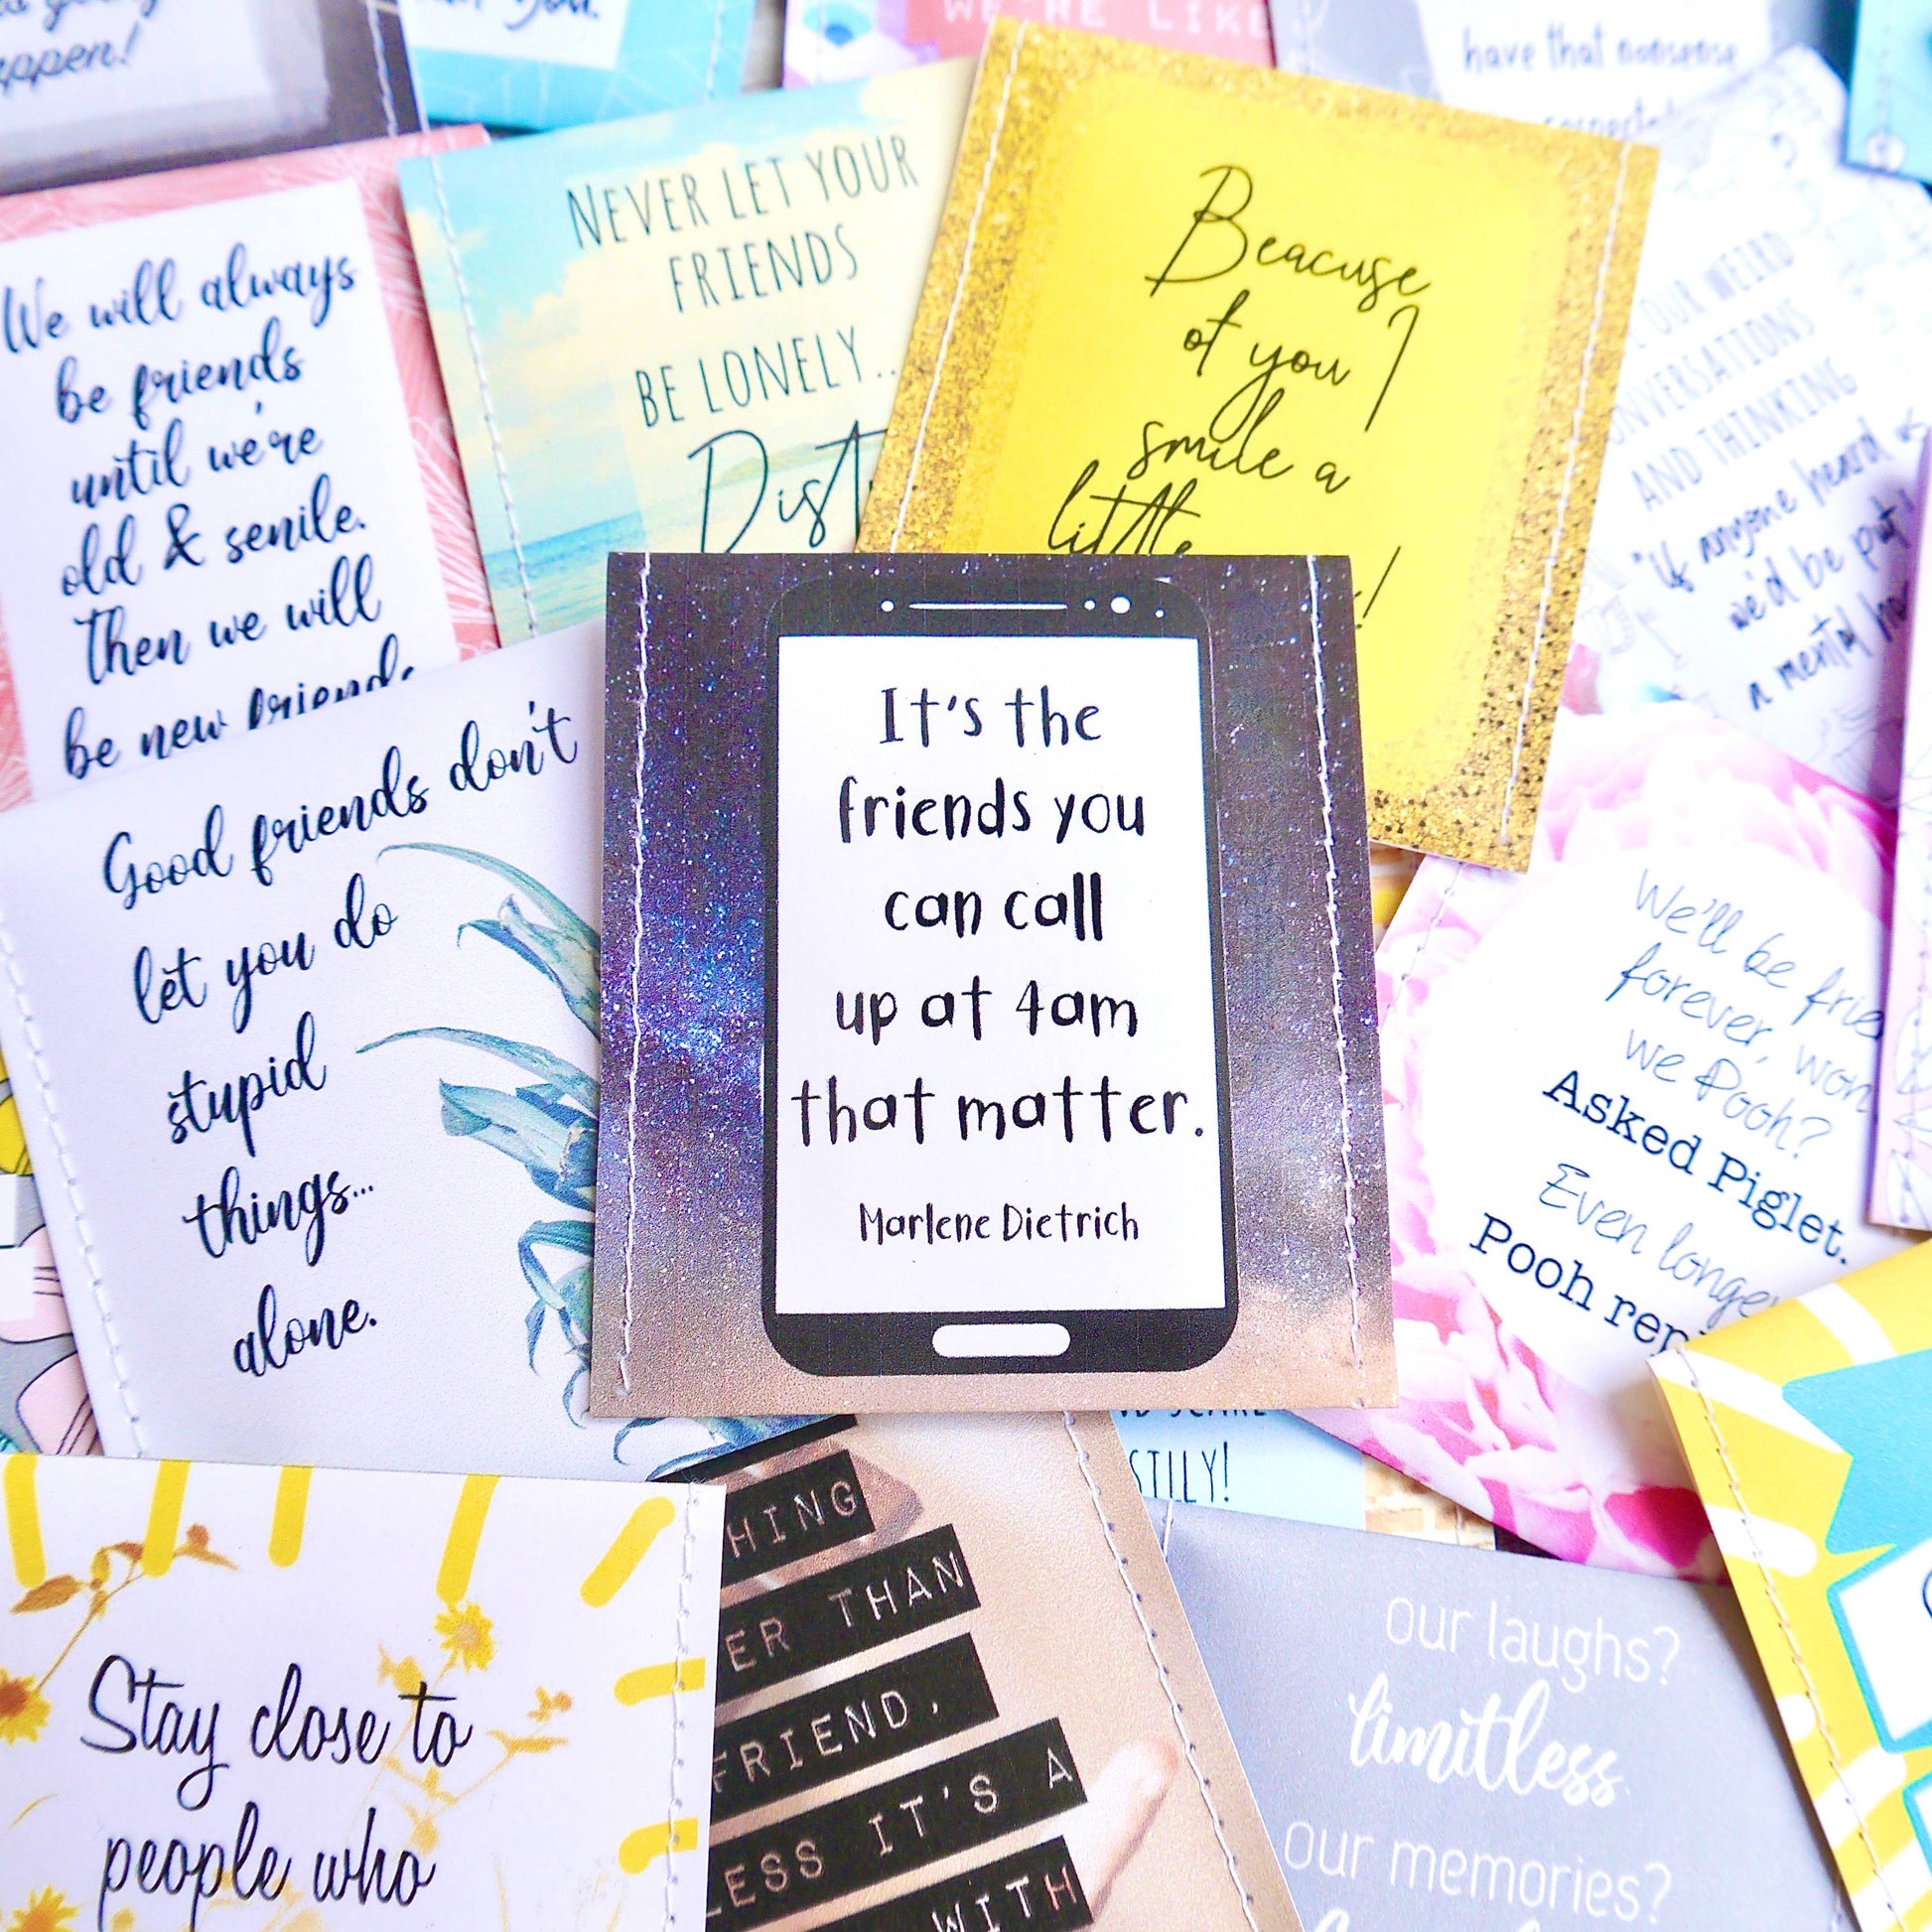 appen!
you.
WE'RE LIKE
have that nonsense
We will always
be friends
until we're
old & senile.
Then we will
be new friends
NEVER LET YOUR
FRIENDS
BE LONELY..
Dist
Beacuse
of you I
smile a
little
!
OUR WEIRD
ONVERSATIONS
AND THINKING
"if anyone heard us
we'd be put
a mental
Good friends don't
let you do
stupid
things...
alone.
It's the
friends you
can call
up at 4am
that matter.
Marlene Dietrich
We'll be frie
forever, won
we Pooh?
Asked Piglet.
Even longe
Pooh rep
STILY!
Stay close to
people who
HING
ER THAN
FRIEND,
LESS IT'S A
WITH
our laughs?
limitless.
our memories?